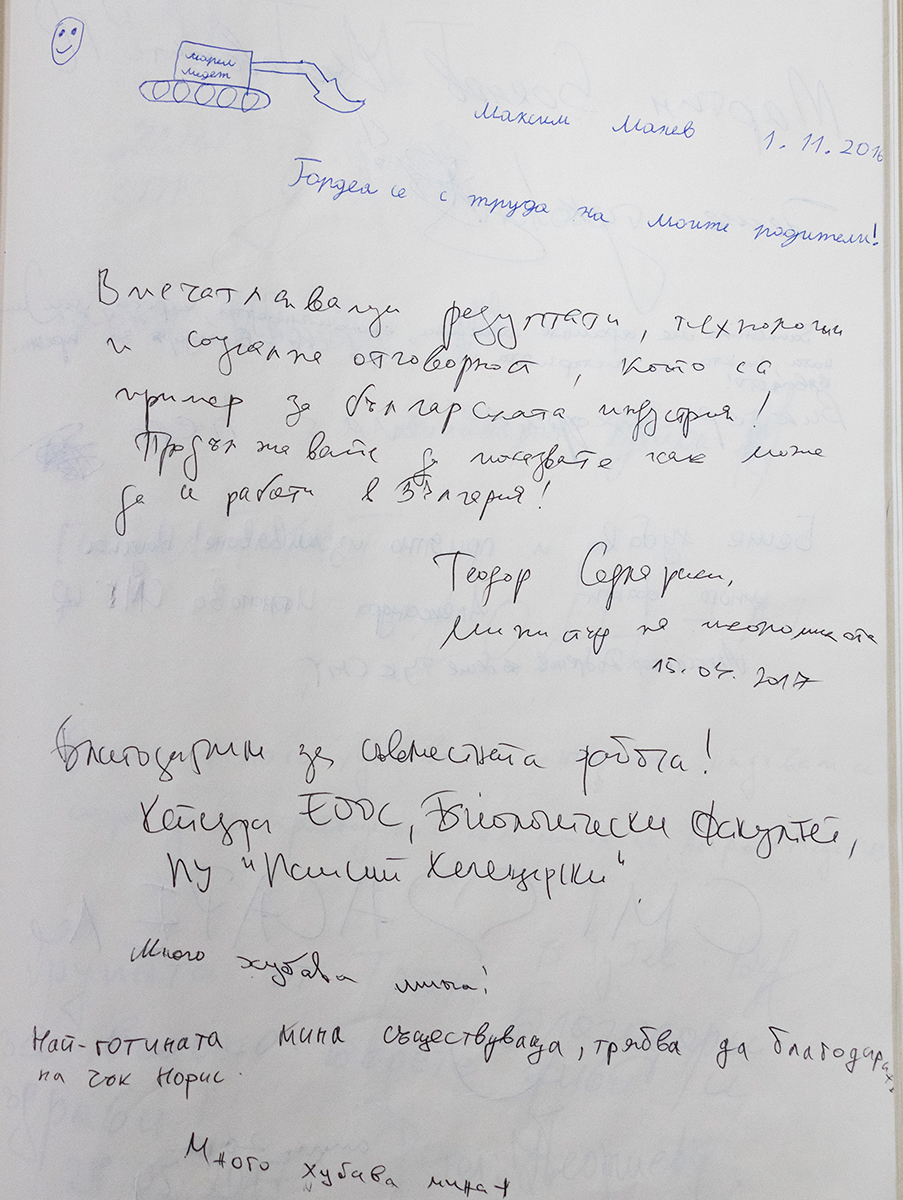 мареш
лидет
Максим Манев 1.11.2016
Гордея се с труда на моите родители!
Впечатляващи резултати, технологии
и социална отговорност, които са
пример за българската индустрия!
Продължавайте да показвате как може
да се работи в България!
Теодор Седларски,
Министър на икономиката
15.04.2017
Благодарим за съвместната работа!
Катедра ЕООС, Биологически факултет,
ПУ "Паисий Хилендарски"
Много хубава мина!
Най-готината мина съществуваща, трябва да благодарях
на Чък Норис.
Много хубава мина